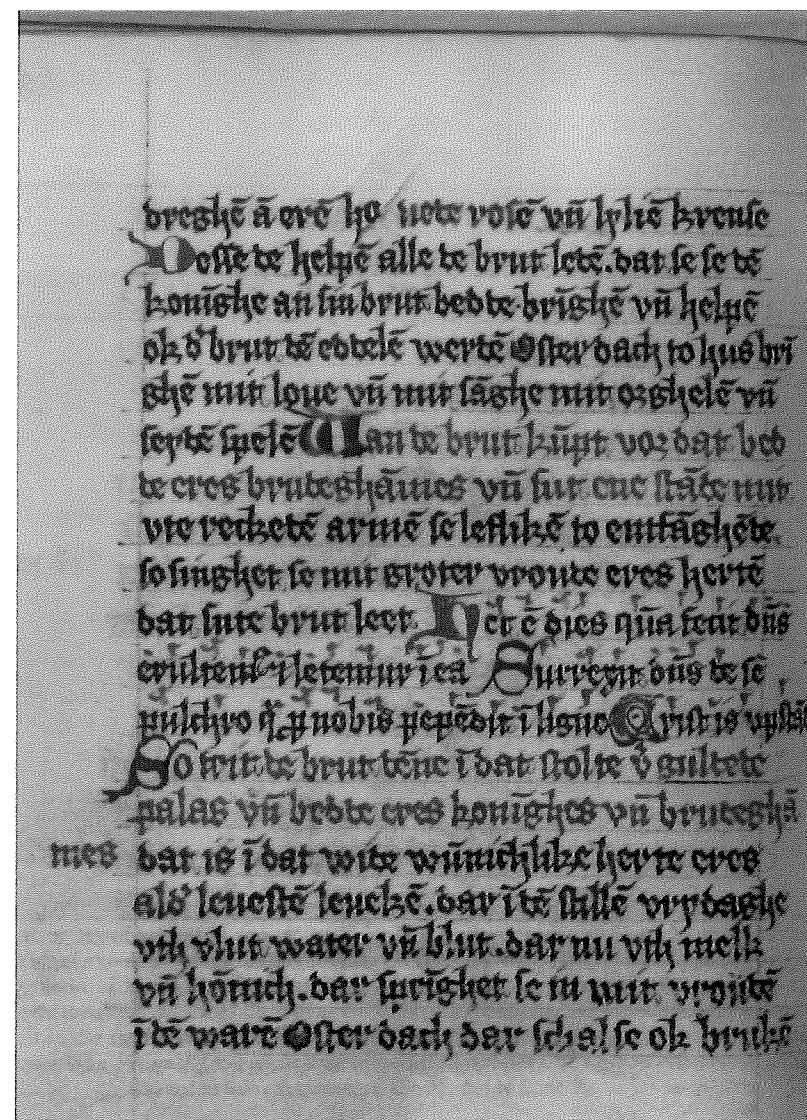 dreghē ā erē ho uete rosē vn̄ lyliē krense
Posse te helpē alle te brut letē. dat se se tē
konīghe an sin brut bedte brīghē vn̄ helpē
ok d' brut tē edtelē wertē Oster dach to hus brī
ghē mit loue vn̄ mit sāghe mit orghelē vn̄
seytē spelē Wan te brut kūpt vor dat bed
te eres bruteghāmes vn̄ sut ene stāte mit
vte reckētē armē se lefliкē to emfāghēte.
so singhet se mit groter vroute eres hertē
dat sute brut leet. Hec ē dies quā fecit dn̄s
exultem' i letemur i ea Surrexit dn̄s te se
pulchro q̄ p nobis pepēdit ī ligno Crist is vpstā
So trit te brut tēne ī dat stolte v'gultete
palas vn̄ bedte eres konīghes vn̄ bruteghā
mes dat is ī dat wite wn̄nichlike herte eres
ald' leuestē leuekē. dar ī tē stillē vrydaghe
vth vlut water vn̄ blut. dar nu vth melk
vn̄ hōnich. dar sprīghet se in mit vroutē
ī tē warē Oster dach dar schal se ok brukē